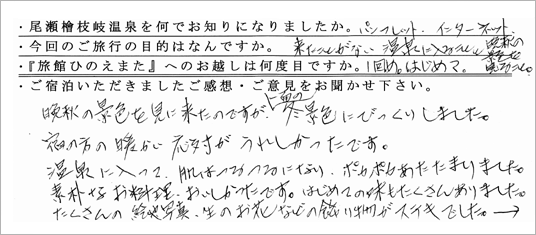 ・尾瀬檜枝岐温泉を何でお知りになりましたか。パンフレット、インターネット
・今回のご旅行の目的はなんですか。来たことがない温泉に入ること。晩秋の景色を見ること。
・『旅館ひのえまた』へのお越しは何度目ですか。1回め。はじめて。
・ご宿泊いただきましたご感想・ご意見をお聞かせ下さい。
晩秋の景色を見に来たのですが、冬景色にびっくりしました。
宿の方の暖かい応対がうれしかったです。
温泉に入って、肌はつるつるになり、ポカポカあたたまりました。
素朴なお料理、おいしかったです。はじめての味もたくさんありました。
たくさんの絵や写真、生のお花などの飾り物がステキでした。→